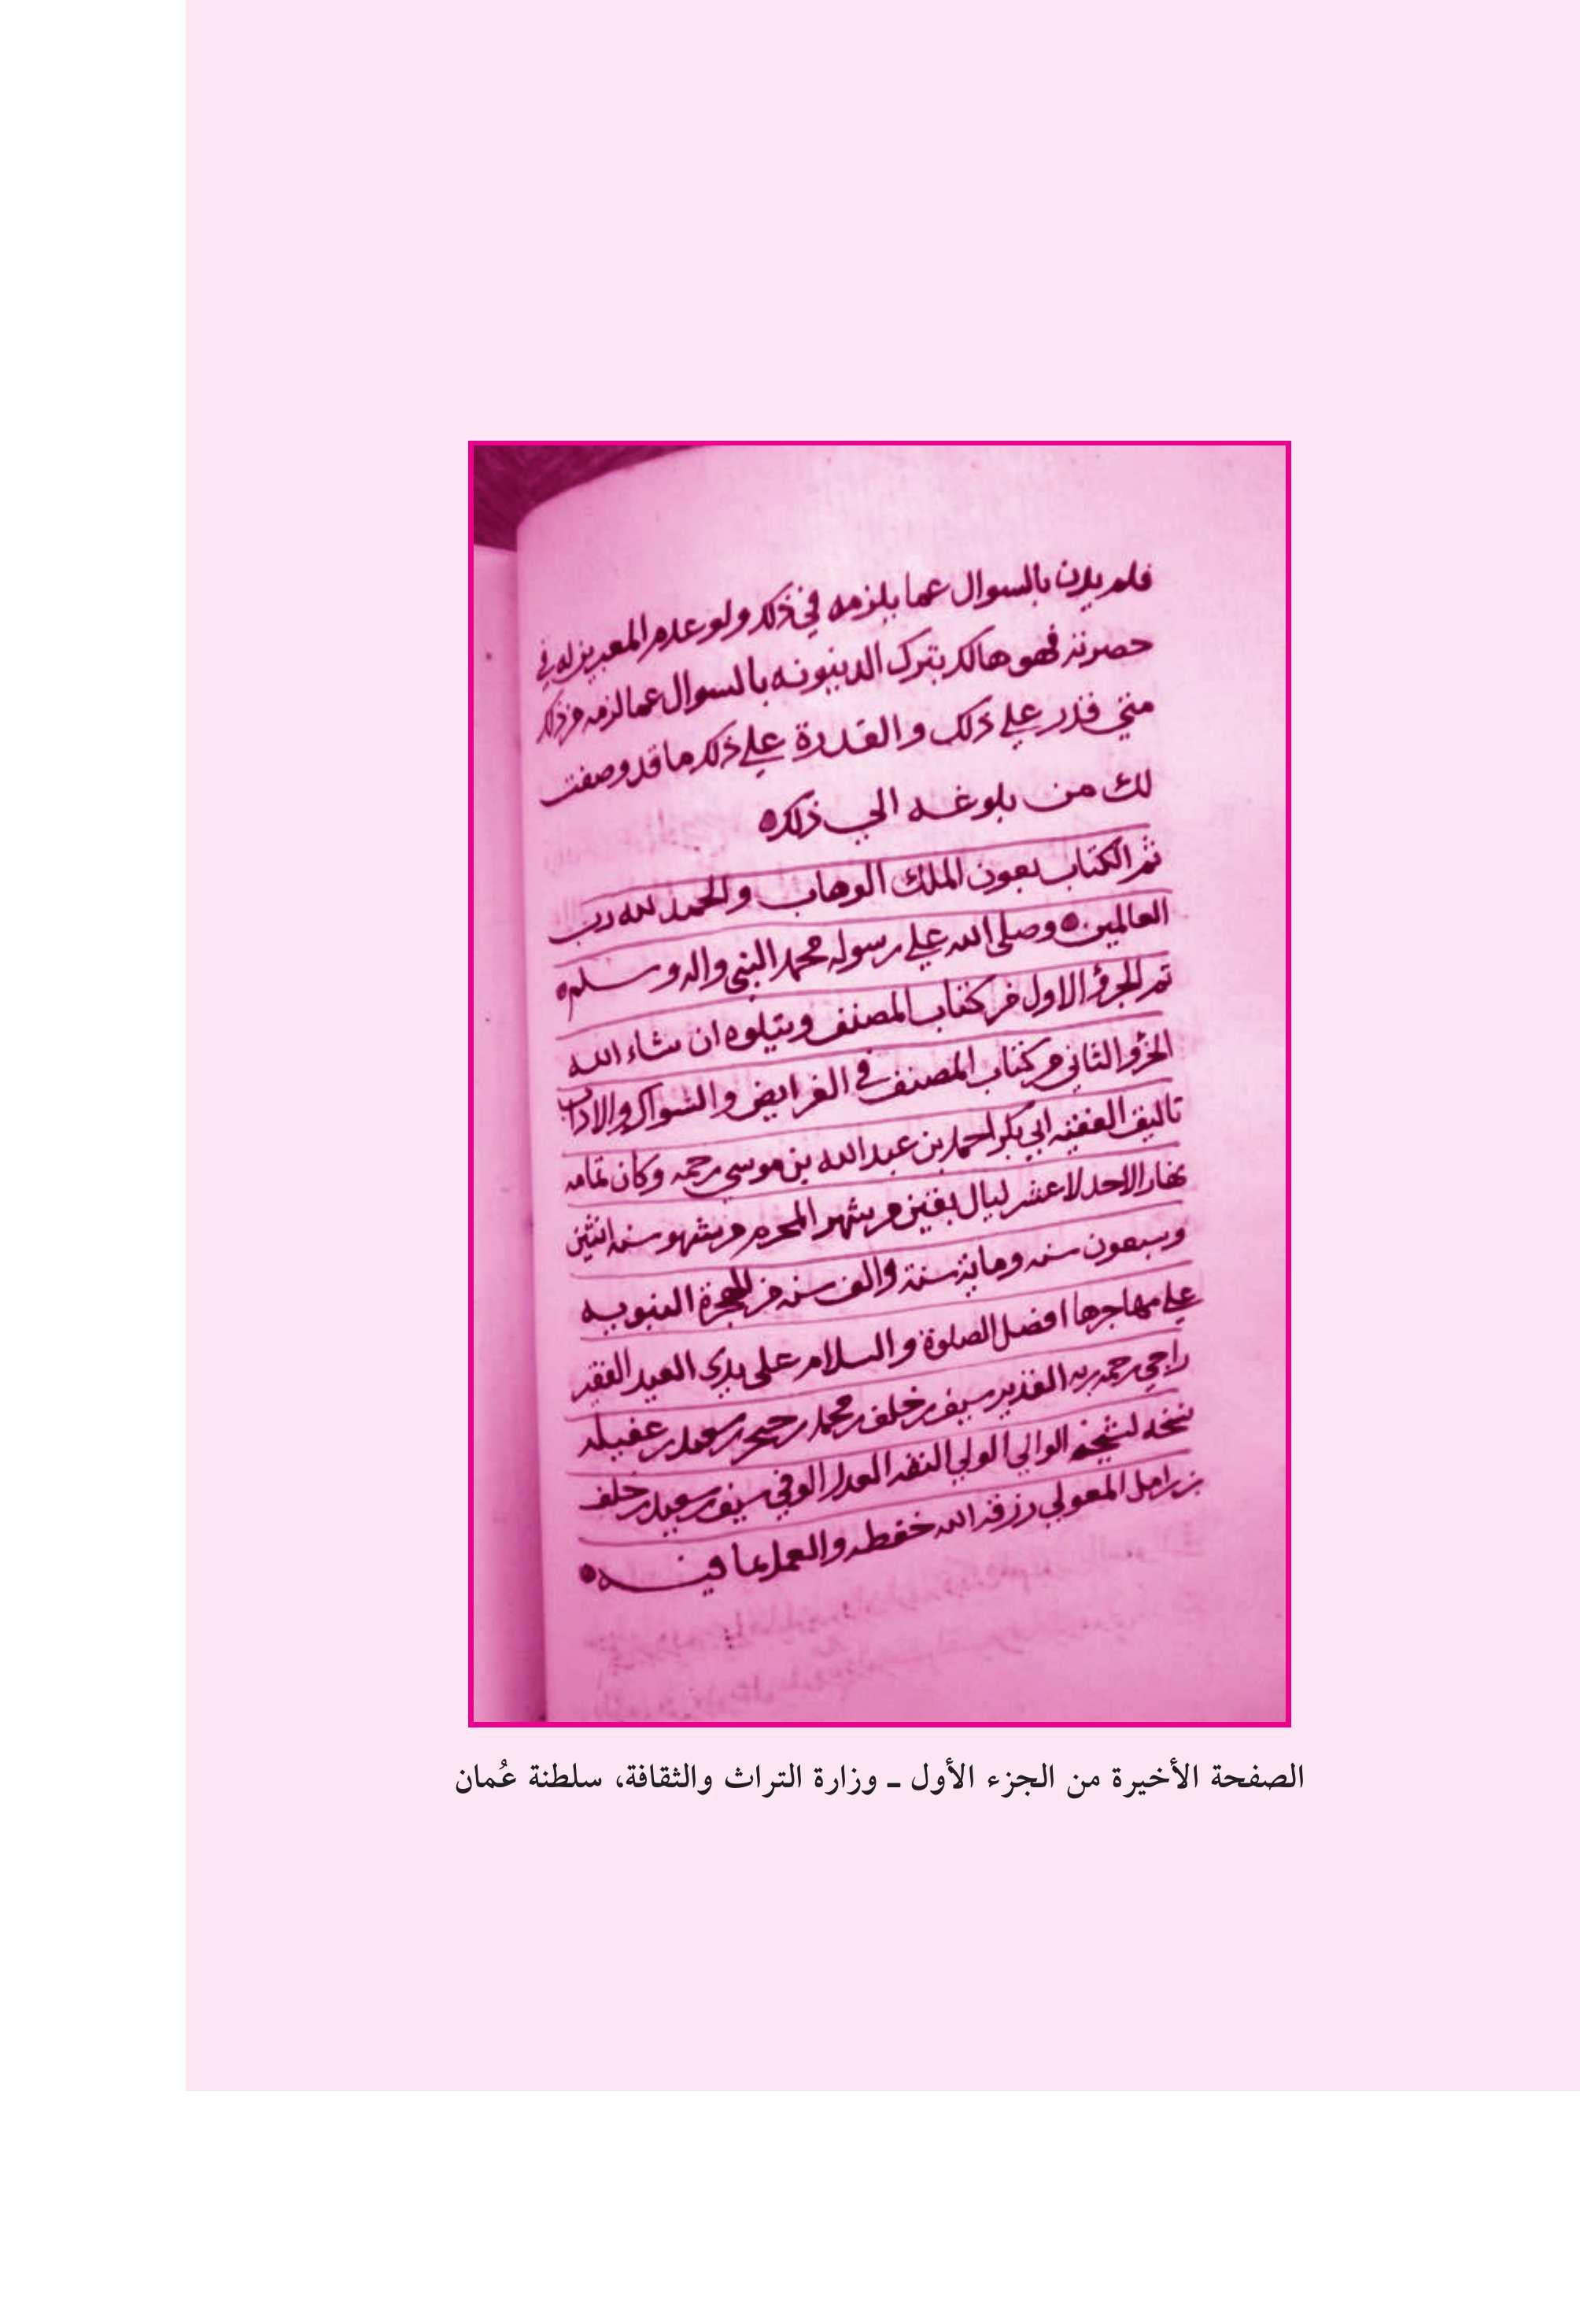 فلم يدن بالسوال عما يلزمه في ذلك ولو عدم المعبرين له في
حضرته فهو هالك بترك الدينونه بالسوال عما لزمه من ذلك
متي قدر علي ذلك والقدرة علي ذلك ما قد وصفت
لك من بلوغه الي ذلك
تم الكتاب بعون الملك الوهاب والحمد لله رب
العالمين وصلى الله علي رسوله محمد النبي واله وسلم
تم الجزؤ الاول من كتاب المصنف ويتلوه ان شاء الله
الجزؤ الثاني من كتاب المصنف في الفرايض والسواك والاداب
تاليف الفقيه ابي بكر احمد بن عبد الله بن موسي رحمه وكان تمامه
نهار الاحد لا عشر ليال بقين من شهر المحرم من شهو سنه اثنين
وسبعون سنه وماية سنة والف سنه من الهجرة النبويه
علي مهاجرها افضل الصلوة والسلام على يدي العبد الفقير
راجي رحمه ربه القدير سيف بن خلف بن محمد بن سعيد بن عقيله
نسخه لشيخه الوالي الولي الثقه العدل الوفي سيف بن سعيد بن خلف
بن زامل المعولي رزقه الله حفظه والعمل بما فيه
الصفحة الأخيرة من الجزء الأول ـ وزارة التراث والثقافة، سلطنة عُمان